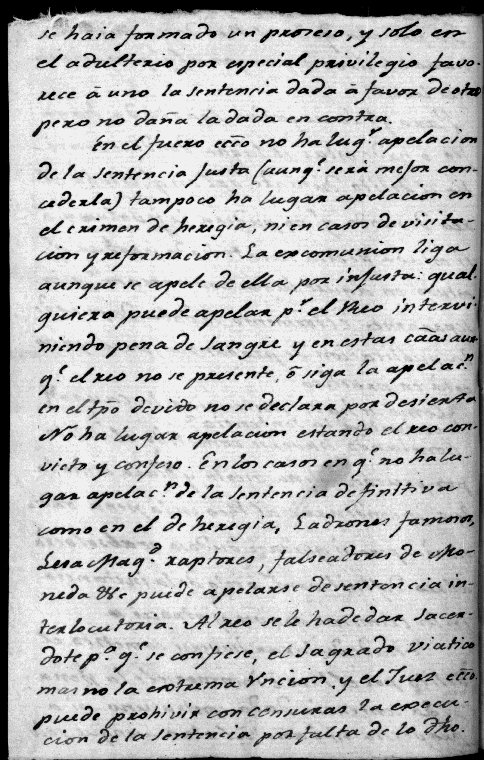 se haia formado un proseso, y solo en
el adulterio por especial privilegio favo-
rece á uno la sentencia dada á favor de otro
pero no daña la dada en contra.
En el fuero ecco no ha lugr apelacion
de la sentencia justa (aunqe será mejor con-
cederla) tampoco ha lugar apelacion en
el crimen de heregia, ni en casos de visita-
cion y reformacion. La excomunion liga
aunque se apele de ella por injusta: qual-
quiera puede apelar pr el Reo intervi-
niendo pena de sangre y en estas caãs aun-
qe el reo no se presente, ó siga la apelacn
en el tpõ devido no se declara por desierta
No ha lugar apelacion estando el reo con-
victo y confeso. En los casos en qe no ha lu-
gar apelacn de la sentencia definitiva
como en el de heregia, Ladrones famosos,
Lesa Magd raptores, falseadores de Mo-
neda &c puede apelarse de sentencia in-
terlocutoria. Al reo se le ha de dar sacer-
dote pa qe se confiese, el sagrado viatico
mas no la extrema Vncion. y el Juez ecco
puede prohivir con censuras la execu-
cion de la sentencia por falta de lo dho.